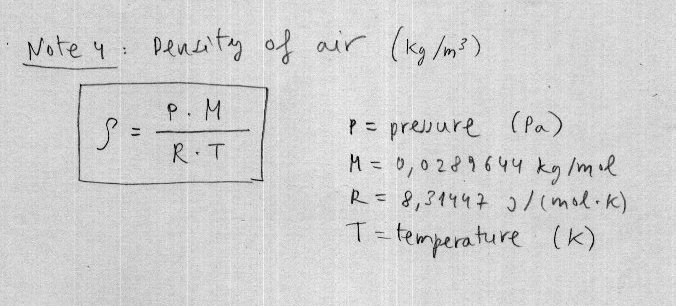 Note 4 : Density of air (kg/m³)
ρ = P. M / R. T
P = pressure (Pa)
M = 0,0289644 kg/mol
R = 8,31447 J/(mol.K)
T = temperature (K)